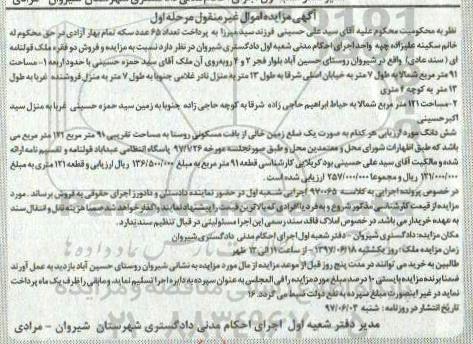 آگهی مزایده اموال غیر منقول مرحله اول
نظر به محکومیت محکوم علیه آقای سید علی حسینی فرزند سید میرزا به پرداخت تعداد ۶۵ عدد سکه تمام بهار آزادی در حق محکوم له
خانم سکینه علیزاده چپه واحد اجرای احکام مدنی شعبه اول دادگستری شیروان در نظر دارد نسبت به مزایده و فروش دو فقره ملک قولنامه
ای (سند عادی) واقع در شیروان روستای حسین آباد بلوار فجر ۲ و ۴ روبه روی آن ملک آقای سید حمزه حسینی با حدود اربعه ۱- مساحت
۹۱ متر مربع شمالا به طول ۷ متر به خیابان اصلی شرقا به طول ۱۳ متر به منزل نادر غلامی جنوبا به طول ۷ متر به منزل فروشنده غربا به طول
۱۳ متر به کوچه ۴ متری
۲- مساحت ۱۲۱ متر مربع شمالا به حیاط ابراهیم حاجی زاده شرقا به کوچه حاجی زاده جنوبا به زمین سید حمزه حسینی غربا به منزل سید
اکبر حسینی
شش دانگ مورد ارزیابی هر کدام به صورت یک ضلع زمین خالی از بافت مسکونی روستا به مساحت تقریبی ۹۱ متر مربع ۱۲۱ متر مربع می
باشد که طبق اظهارات شورای محل و معتمدین محل و طبق صورتجلسه مورخه ۹۷/۲/۶ پاسگاه انتظامی عبدآباد قولنامه و تقسیم نامه ارائه
شده و مالکیت آقای سید علی حسینی بود کربلایی کارشناسی قطعه ۹۱ متر مربع به مبلغ ۱۳۶/۵۰۰/۰۰۰ ریال ارزیابی و قطعه ۱۲۱ متری به مبلغ
۱۲۱/۰۰۰/۰۰۰ ریال و مجموعا ۲۵۷/۰۰۰/۰۰۰ ارزیابی شده است.
در خصوص پرونده اجرایی به کلاسه ۹۷۰۰۶۵ اجرایی شعبه اول در حضور نماینده دادستان و دادورز اجرای حقوقی به فروش برساند . مورد
مزایده از قیمت کارشناسی مذکور شروع و به فرد یا افرادی که بالاترین قیمت را پیشنهاد نمایند واگذار خواهد شد ضمنا هزینه نقل و انتقال سند
به عهده خریدار می باشد در خصوص املاک فاقد سند رسمی این اجرا مسئولیتی در قبال تنظیم سند ندارد.
مکان مزایده: دادگستری شیروان - دفتر شعبه اول اجرای احکام مدنی دادگستری شیروان
زمان مزایده ملک: روز یکشنبه ۱۳۹۷/۰۶/۱۸ - از ساعت ۱۱ الی ۱۲ ظهر
طالبین به خرید می توانند در مدت پنج روز قبل از موعد مزایده از مال مورد مزایده به نشانی شیروان روستای حسین آباد بازدید به عمل آورند
ضمنا برنده مزایده بایستی ۱۰ درصد مبلغ مورد مزایده را فی المجلس به عنوان سپرده به دایره اجرا تسلیم نماید و مابقی را ظرف یک ماه پرداخت
نماید در غیر اینصورت مبلغ سپرده به نفع دولت ضبط می گردد. ۱۶
تاریخ انتشار در روزنامه: شنبه ۹۷/۰۶/۰۳
مدیر دفتر شعبه اول اجرای احکام مدنی دادگستری شهرستان شیروان - مرادی